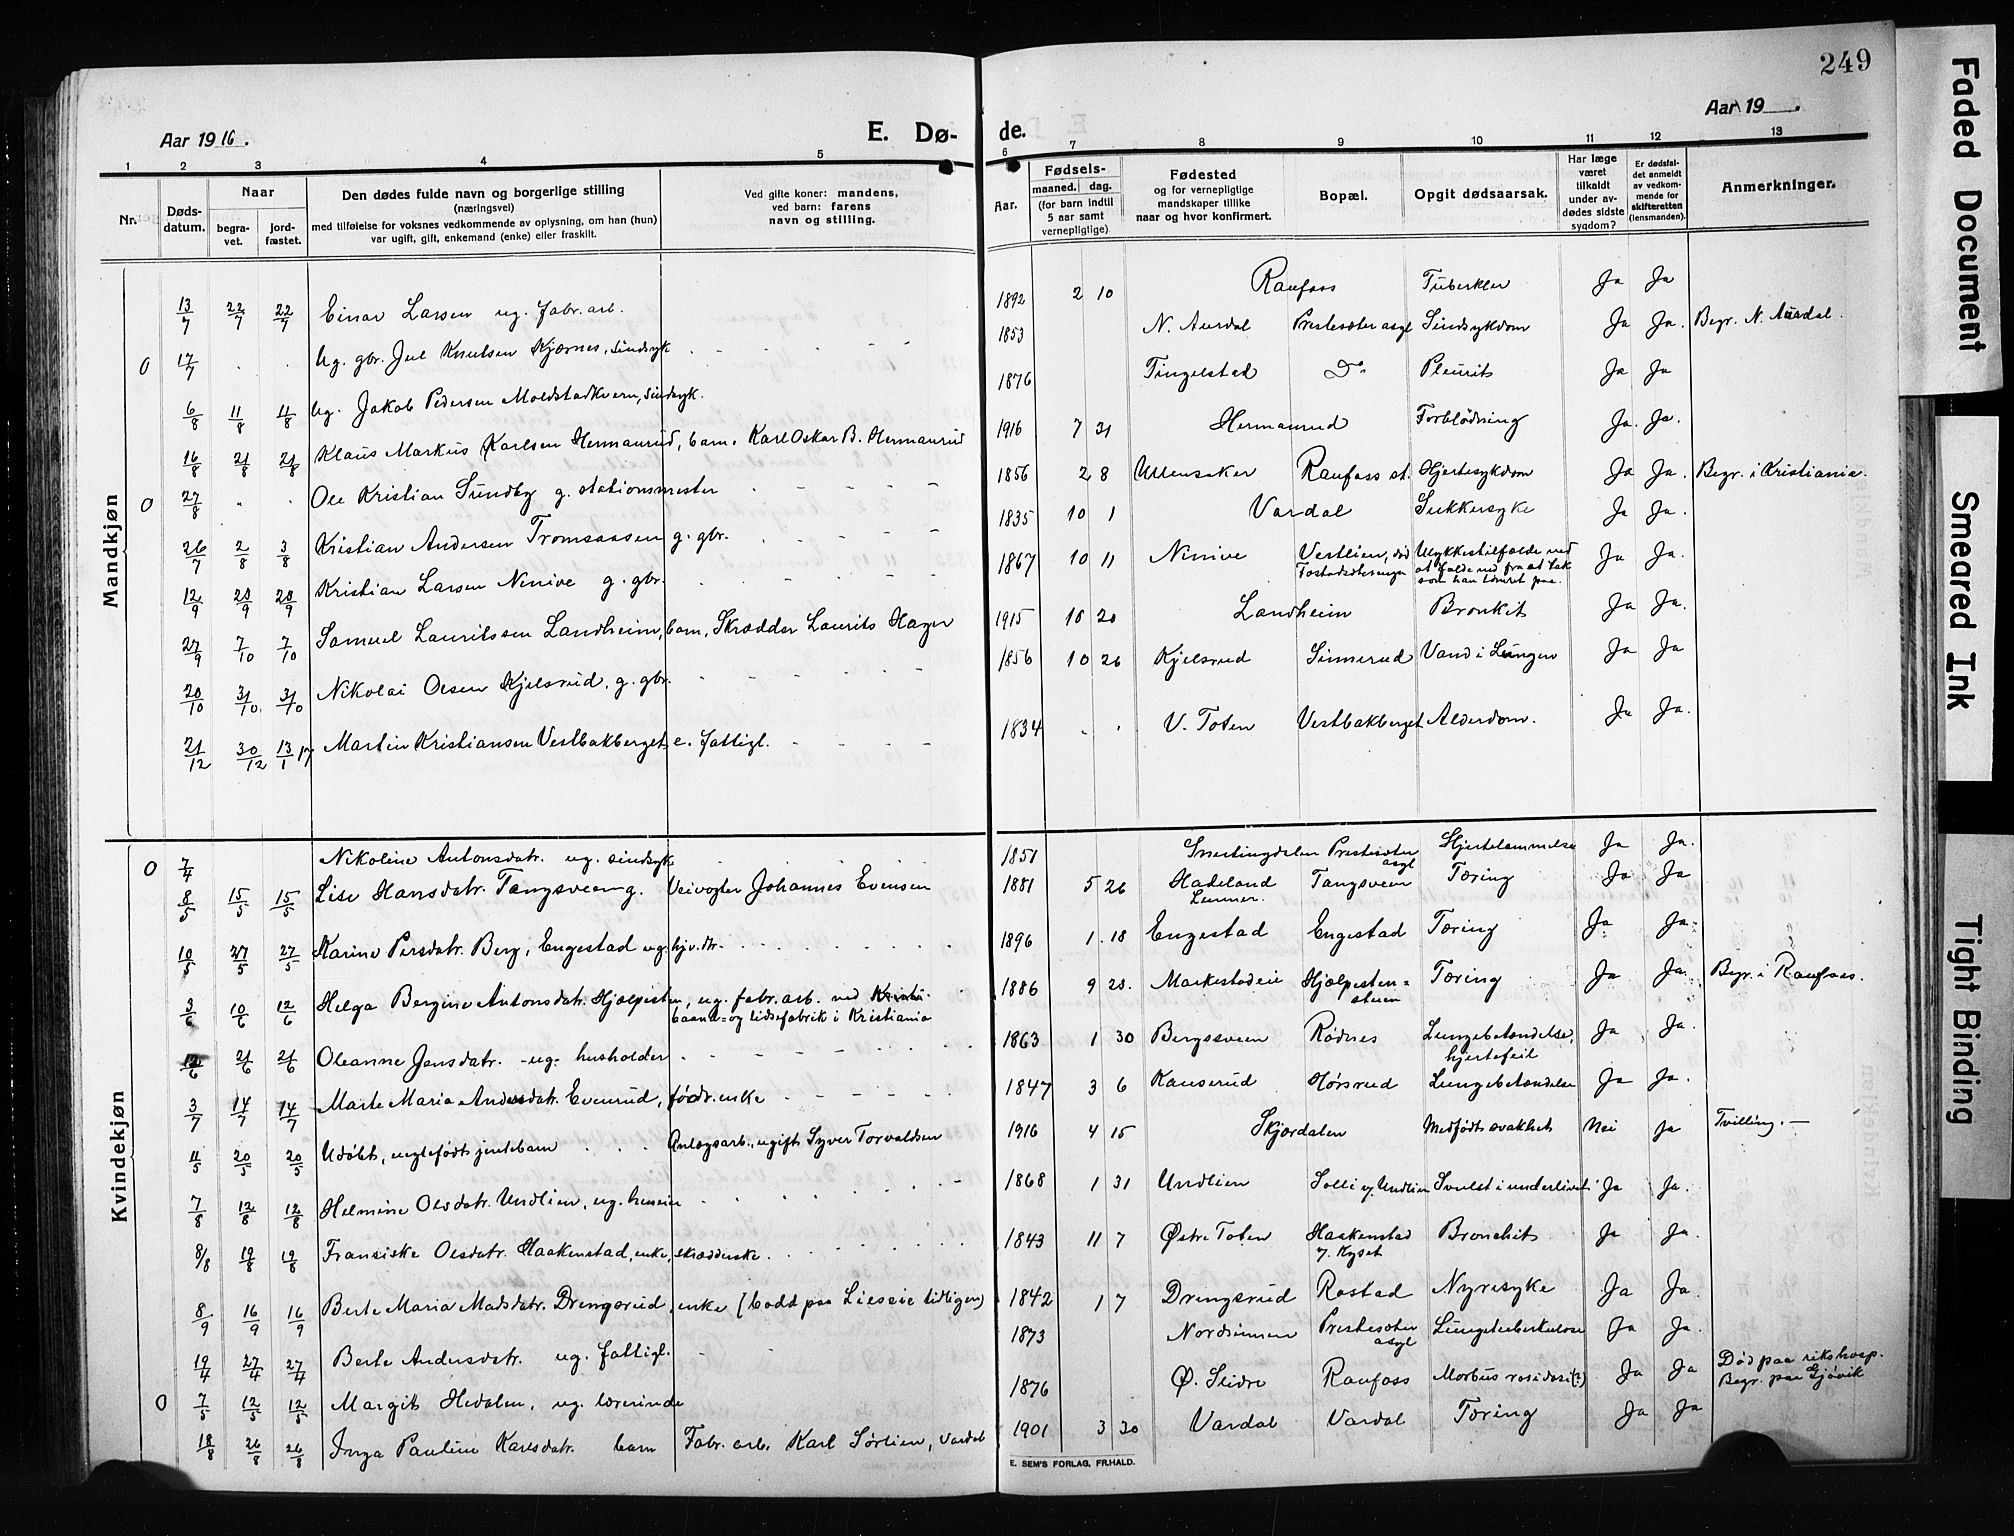 249
Aar 1916.
E. Dø-
de.
Aar 19    .
1 2 3 4 5 6 7 8 9 10 11 12 13
Nr.
Døds-datum.
Naar
begra-vet.
jord-fæstet.
Den dødes fulde navn og borgerlige stilling
(næringsvei)
med tilføielse for voksnes vedkommende av oplysning, om han (hun)
var ugift, gift, enkemand (enke) eller fraskilt.
Ved gifte koner: mandens,
ved barn: farens
navn og stilling.
Aar.
Fødsels-
maaned. dag.
(for barn indtil
5 aar samt
vernepligtige)
Fødested
og for vernepligtige
mandskaper tillike
naar og hvor konfirmert.
Bopæl.
Opgit dødsaarsak.
Har læge
været
tilkaldt
under av-
dødes sidste
sygdom?
Er dødsfal-
det anmeldt
av vedkom-
mende for
skifteretten
(lensmanden).
Anmerkninger.
Mandkjøn
13/7 22/7 22/7 Einar Larsen ug. fabr.arb. 1892 2 10 Raufoss Tuberkler Ja Ja
0 17/7 . . Ug. gbr. Jul Knutsen Kjærnes, sindssyk 1853 N. Aurdal Prestesæter asyl Sindsykdom Ja Ja. Begr. N. Aurdal.
6/8 11/8 11/8 Ug. Jakob Pedersen Moldstadkvern, sindssyk. 1876 Tingelstad Do Pleurit Ja Ja
16/8 21/8 21/8 Klaus Markus Karlsen Hermanrud, barn. Karl Oskar B. Hermanrud 1916 7 31 Hermanrud Forblødning Ja. Ja.
0 27/8 . . Ole Kristian Sundby g. stationsmester 1856 2 8 Ullensaker Raufoss st. Hjertesykdom Ja Ja. Begr. i Kristiania.
26/7 2/8 3/8 Kristian Andersen Tromsaasen g. gbr. 1835 10 1 Vardal Sukkersyke Ja Ja.
12/9 20/9 20/9 Kristian Larsen Ninive g. gbr. 1867 10 11 Ninive Vestlien, død Ulykkestilfælde ved
at falde ned fra et tak
som han tømret paa. Ja Ja.
27/9 7/10 7/10 Samuel Lauritssen Landheim, barn, Skrædder Laurits Hager 1915 10 20 Landheim Bronkit Ja Ja.
20/10 31/10 31/10 Nikolai Olsen Kjelsrud, g. gbr. 1856 10 26 Kjelsrud Sinnerud Vand i Lungen Ja Ja
21/12 30/12 13/1 17 Martin Kristiansen Vestbakberget, e. fattigl. 1834 . . V. Toten Vestbakberget Alderdom. Ja Ja.
Kvindekjøn
0 7/4 Nikoline Antonsdatr. ug. sindsyk 1851 Snertingdalen Prestesæter
asyl Hjertelammelse Ja Ja.
8/5 15/5 15/5 Lise Hansdatr. Tangsveen g. Veivogter Johannes Evensen 1881 5 26 Hadeland
Lunner. Tangsveen Tæring Ja Ja
10/5 27/5 27/5 Karine Persdatr. Berg, Engestad ug. hjv. dtr. 1896 1 18 Engestad Engestad Tæring Ja Ja.
3/6 10/6 12/6 Helga Bergine Antonsdatr. Hjælpesten, ug. fabr. arb. ved
baand- og lidsefabrik i Kristiania 1886 9 23. Markestadeie Hjælpesten-
steien Tæring Ja Ja. Begr. i Raufoss.
12/6 21/6 21/6 Oleanne Jensdatr. ug. husholder 1863 1 30 Bergsveen Rødnes Lungebetændelse,
hjertefeil Ja Ja.
3/7 14/7 14/7 Marte Maria Andersdatr. Evenrud, fødr. enke 1847 3 6 Kauserud Hørsrud Lungebetændelse Ja Ja.
11/5 20/5 20/5 Udøbt, uegtefødt jentebarn Anlægsarb., ugift Syver Torvaldsen 1916 4 15 Skjærdalen Medfødt svakhet Nei Ja Tvilling. —
7/8 12/8 12/8 Helmine Olsdatr. Undlien, ug. huseier 1868 1 31 Undlien Solli v/ Undlien Svulst i underlivet Ja Ja.
8/8 19/8 19/8 Fransiske Olsdatr. Haakenstad, enke, skrædderske. 1843 11 7 Østre Toten Haakenstad Bronchit Ja Ja.
8/9 16/9 16/9 Berte Maria Madsdatr. Drengsrud, enke (bodd paa Lieseie tidligere) 1842 1 7 Drengsrud Rostad Nyresyke Ja Ja.
19/4 27/4 27/4 Berte Andersdatr. ug. fattigl. 1873 Nordsinnen Prestesæter
asyl Lungetuberkulose Ja Ja.
0 7/5 12/5 12/5 Margit Hedalen, ug. lærerinde 1876 Ø. Slidre Raufoss Morbus Ja Ja Død paa rikshosp.
Begr. paa Gjøvik
18/8 26/8 26/8 Inga Pauline Karlsdatr. barn Fabr. arb. Karl Sørlien, Vardal 1901 3 30 Vardal Vardal Tæring Ja Ja
E. SEM'S FORLAG, FR.HALD.
Faded Document
Smeared Ink
Tight Binding